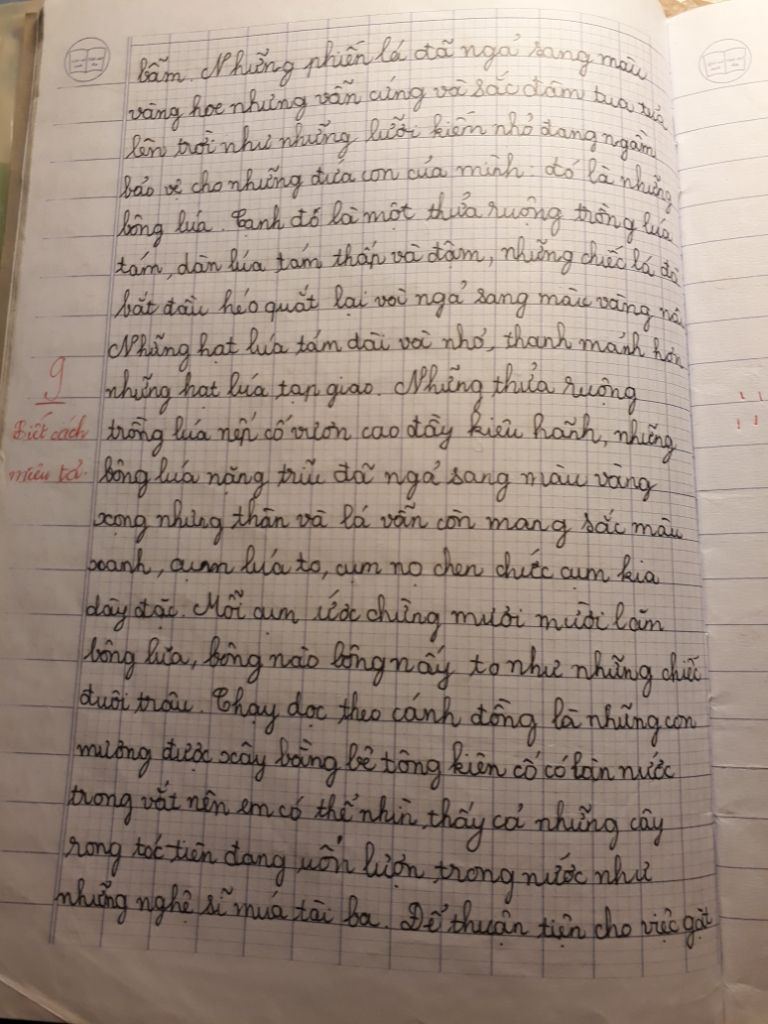 bẫm. Những phiến lá đã ngả sang màu
vàng hoe nhưng vẫn cứng và sắc đâm tua tủa
lên trời như những lưỡi kiếm nhỏ đang ngầm
bảo vệ cho những đứa con của mình: đó là những
bông lúa. Cạnh đó là một thửa ruộng trồng lúa
tám, dàn lúa tám thấp và đậm, những chiếc lá đã
bắt đầu héo quắt lại với ngả sang màu vàng
Những hạt lúa tám dài và nhỏ, thanh mảnh hơn
những hạt lúa tạp giao. Những thửa ruộng
trồng lúa nếp cố vươn cao đầy kiêu hãnh, những
bông lúa nặng trĩu đã ngả sang màu vàng
xọng nhưng thân và lá vẫn còn mang sắc màu
xanh, cụm lúa to, cụm nọ chen chúc cụm kia
dày đặc. Mỗi cụm ước chừng mười mười lăm
bông lúa, bông nào bông nấy to như những chiếc
đuôi trâu. Chạy dọc theo cánh đồng là những con
mương được xây bằng bê tông kiên cố có làn nước
trong vắt nên em có thể nhìn thấy cả những cây
rong tóc tiên đang uốn lượn trong nước như
những nghệ sĩ múa tài ba. Để thuận tiện cho việc gặt
9
Biết cách
miêu tả.